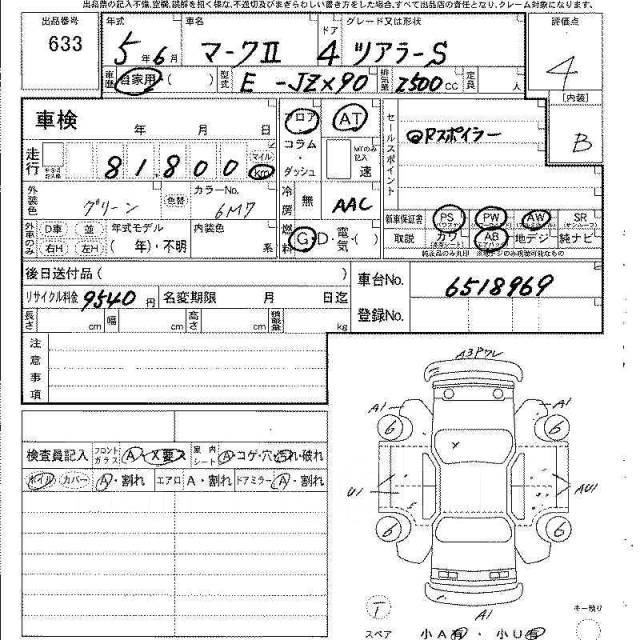 出品票の記入不備、空欄、誤解を招く様な、不適切及びまぎらわしい書き方をした場合、すべて出品店の責任となり、クレーム対象になります。
出品番号
633
年式
5年6月
車名
マークⅡ
ドア
4
グレード又は形状
ツアラーS
評価点
4
[内装]
B
車歴
自家用 ( )
型式
E-JZX90
排気量
2500CC
定員
人
車検
年 月 日
走行
81,800
マイル
km
フロア
コラム・ダッシュ
AT
MTのみ記入
速
セールスポイント
@Rスポイラー
外装色
グリーン
色替
カラーNo.
6M7
冷房
無
AAC
外車のみ
D車 並
右H 左H
年式モデル
( 年)・不明
内装色
系
燃料
G・D・電気( )
新車保証書
PS
PW
AW
SR
(サンルーフ)
取説
カワ
AB
地デジ
純ナビ
純正品のみ丸印
後日送付品( )
リサイクル料金
9540円
名変期限 月 日迄
車台No.
6518969
登録No.
長さ cm 幅 cm 高さ cm 積載量 kg
注意事項
検査員記入
フロントガラス
A・X要ス
室内シート
A・コゲ・穴・汚れ・破れ
ホイル
カバー
A・割れ
エアロ
A・割れ
ドアミラー
A・割れ
A3Pワレ
A1
A1
6
6
U1
AU1
6
6
A1
T
スペア
小A有・小U有
キー預り